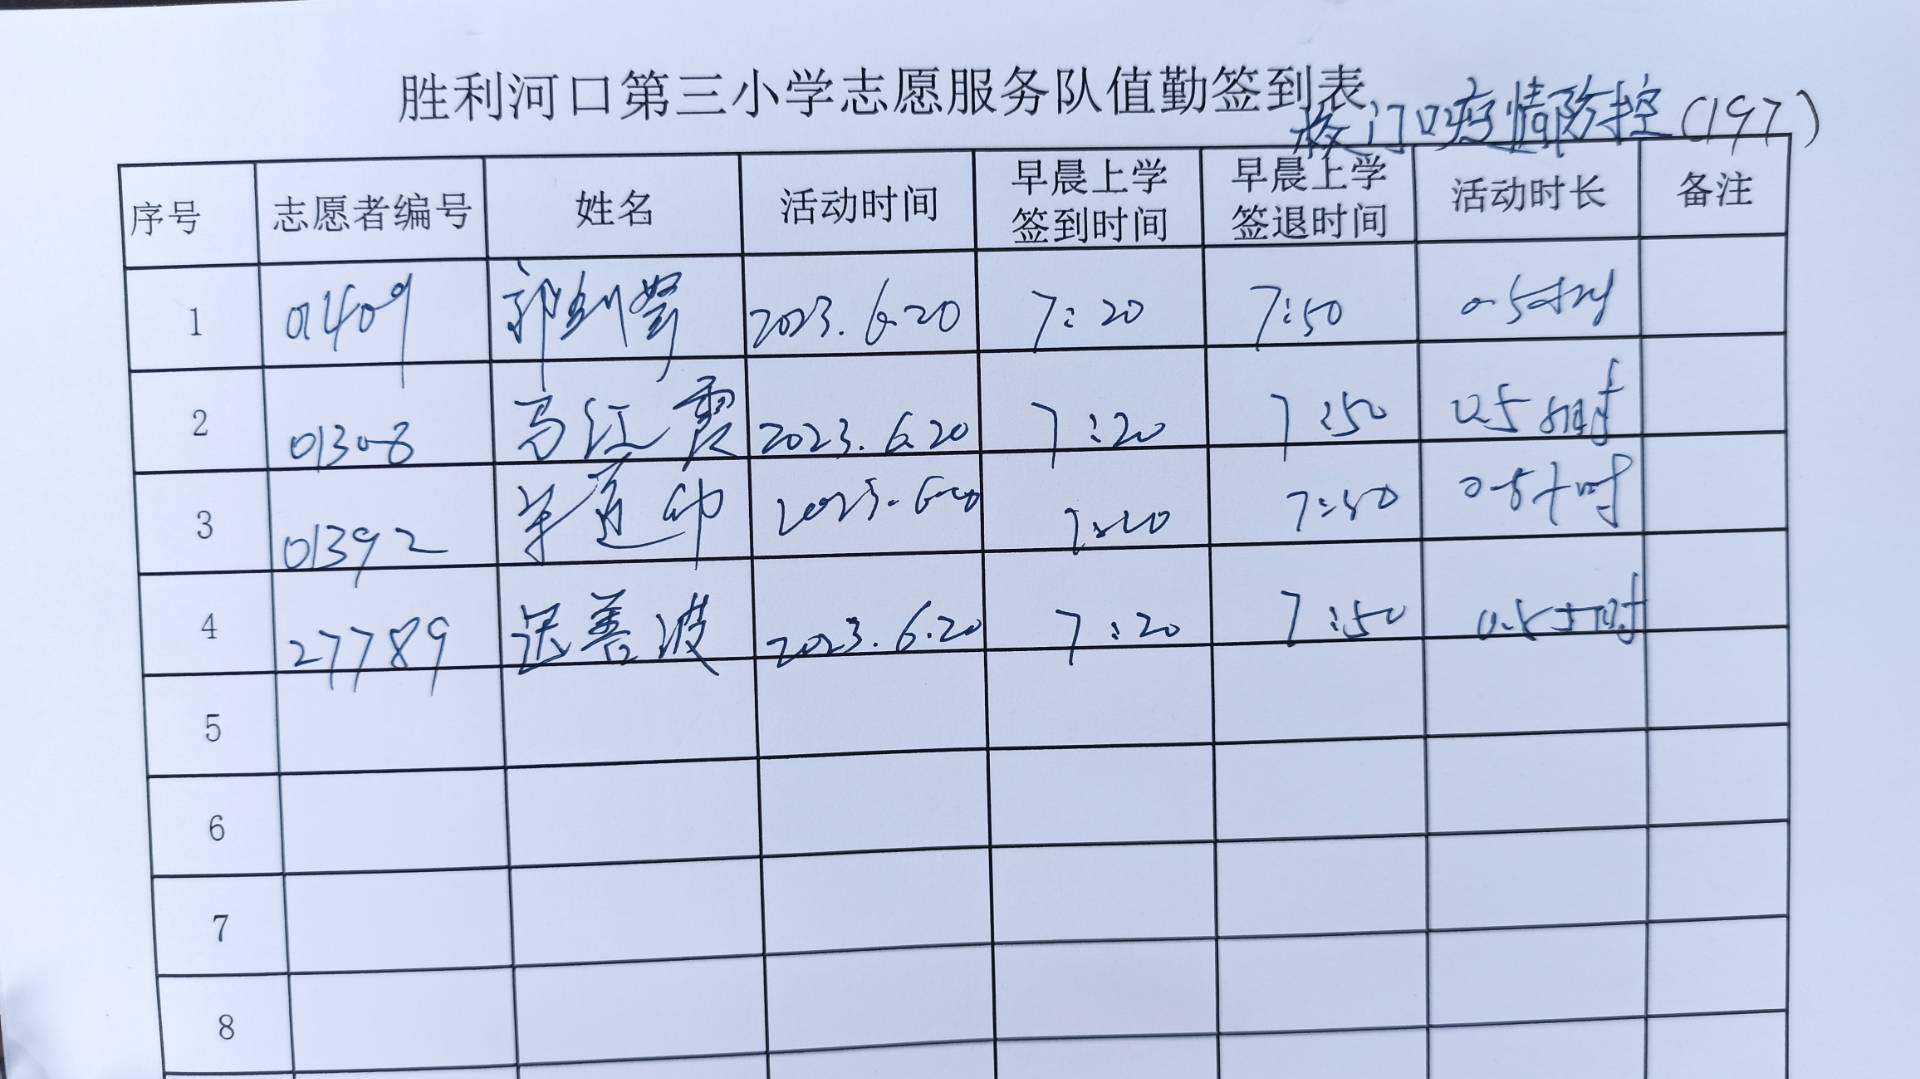 胜利河口第三小学志愿服务队值勤签到表
校门口疫情防控(197)
序号 志愿者编号 姓名 活动时间 早晨上学签到时间 早晨上学签退时间 活动时长 备注
1 01409 2023.6.20 7:20 7:50 0.5小时
2 01308 马红霞 2023.6.20 7:20 7:50 0.5小时
3 01392 2023.6.20 7:20 7:50 0.5小时
4 27789 善波 2023.6.20 7:20 7:50 0.5小时
5
6
7
8